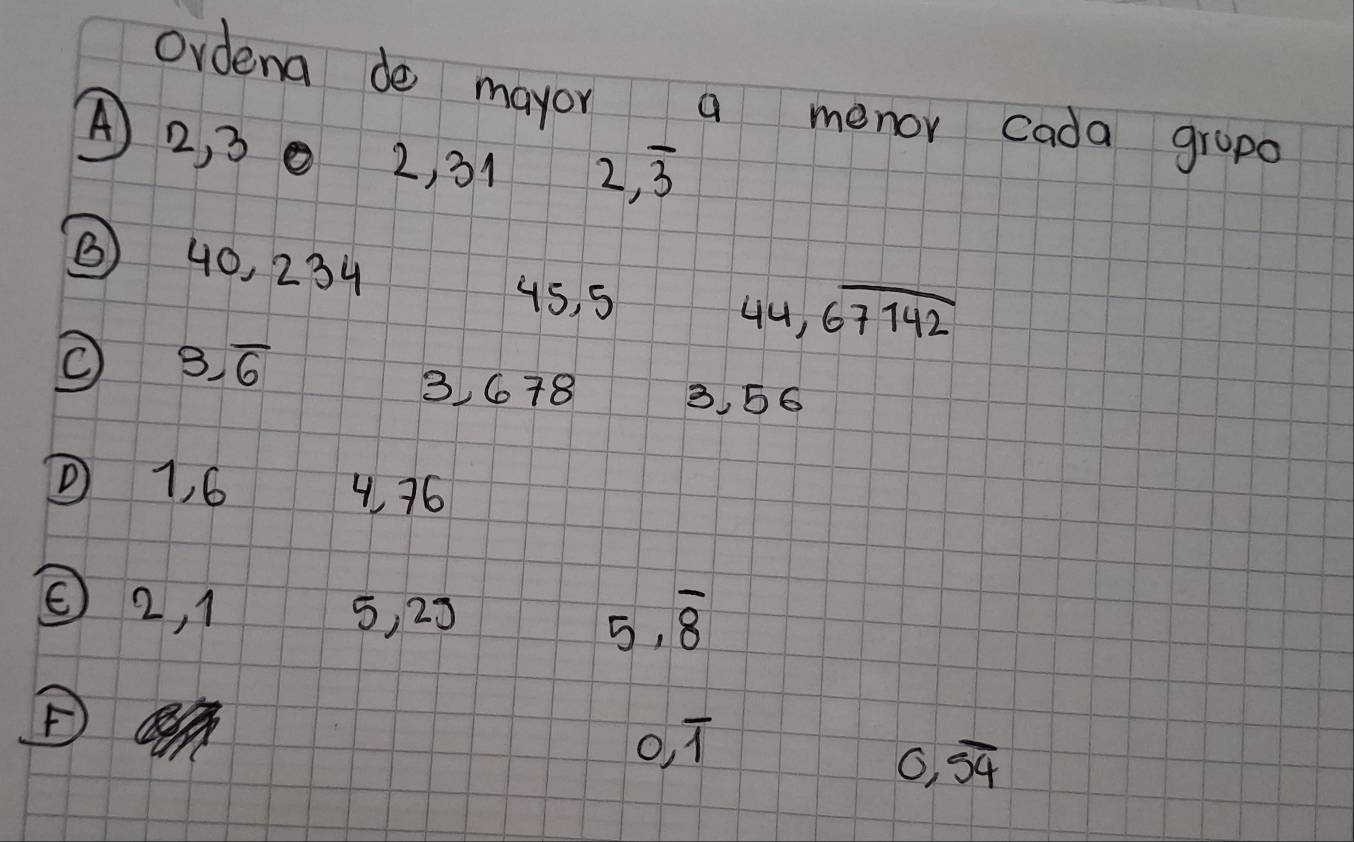 Ordena de mayor a menor cada grupo
Ⓐ 2,3 2,31 2,3̅
Ⓑ 40,234 45,5 44,6̅7̅1̅4̅2̅
Ⓒ 3,6̅ 3,678 3,56
Ⓓ 1,6 4,76
Ⓔ 2,1 5,23 5,8̅
Ⓕ 0,1̅ 0,5̅4̅